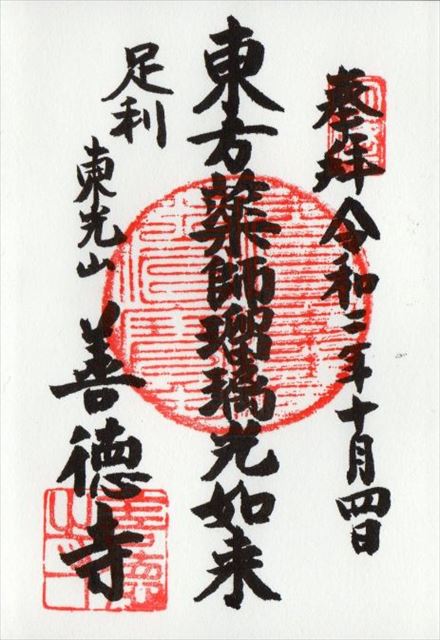 奉拝 令和二年十月四日
東方薬師瑠璃光如来
足利
東光山
善徳寺